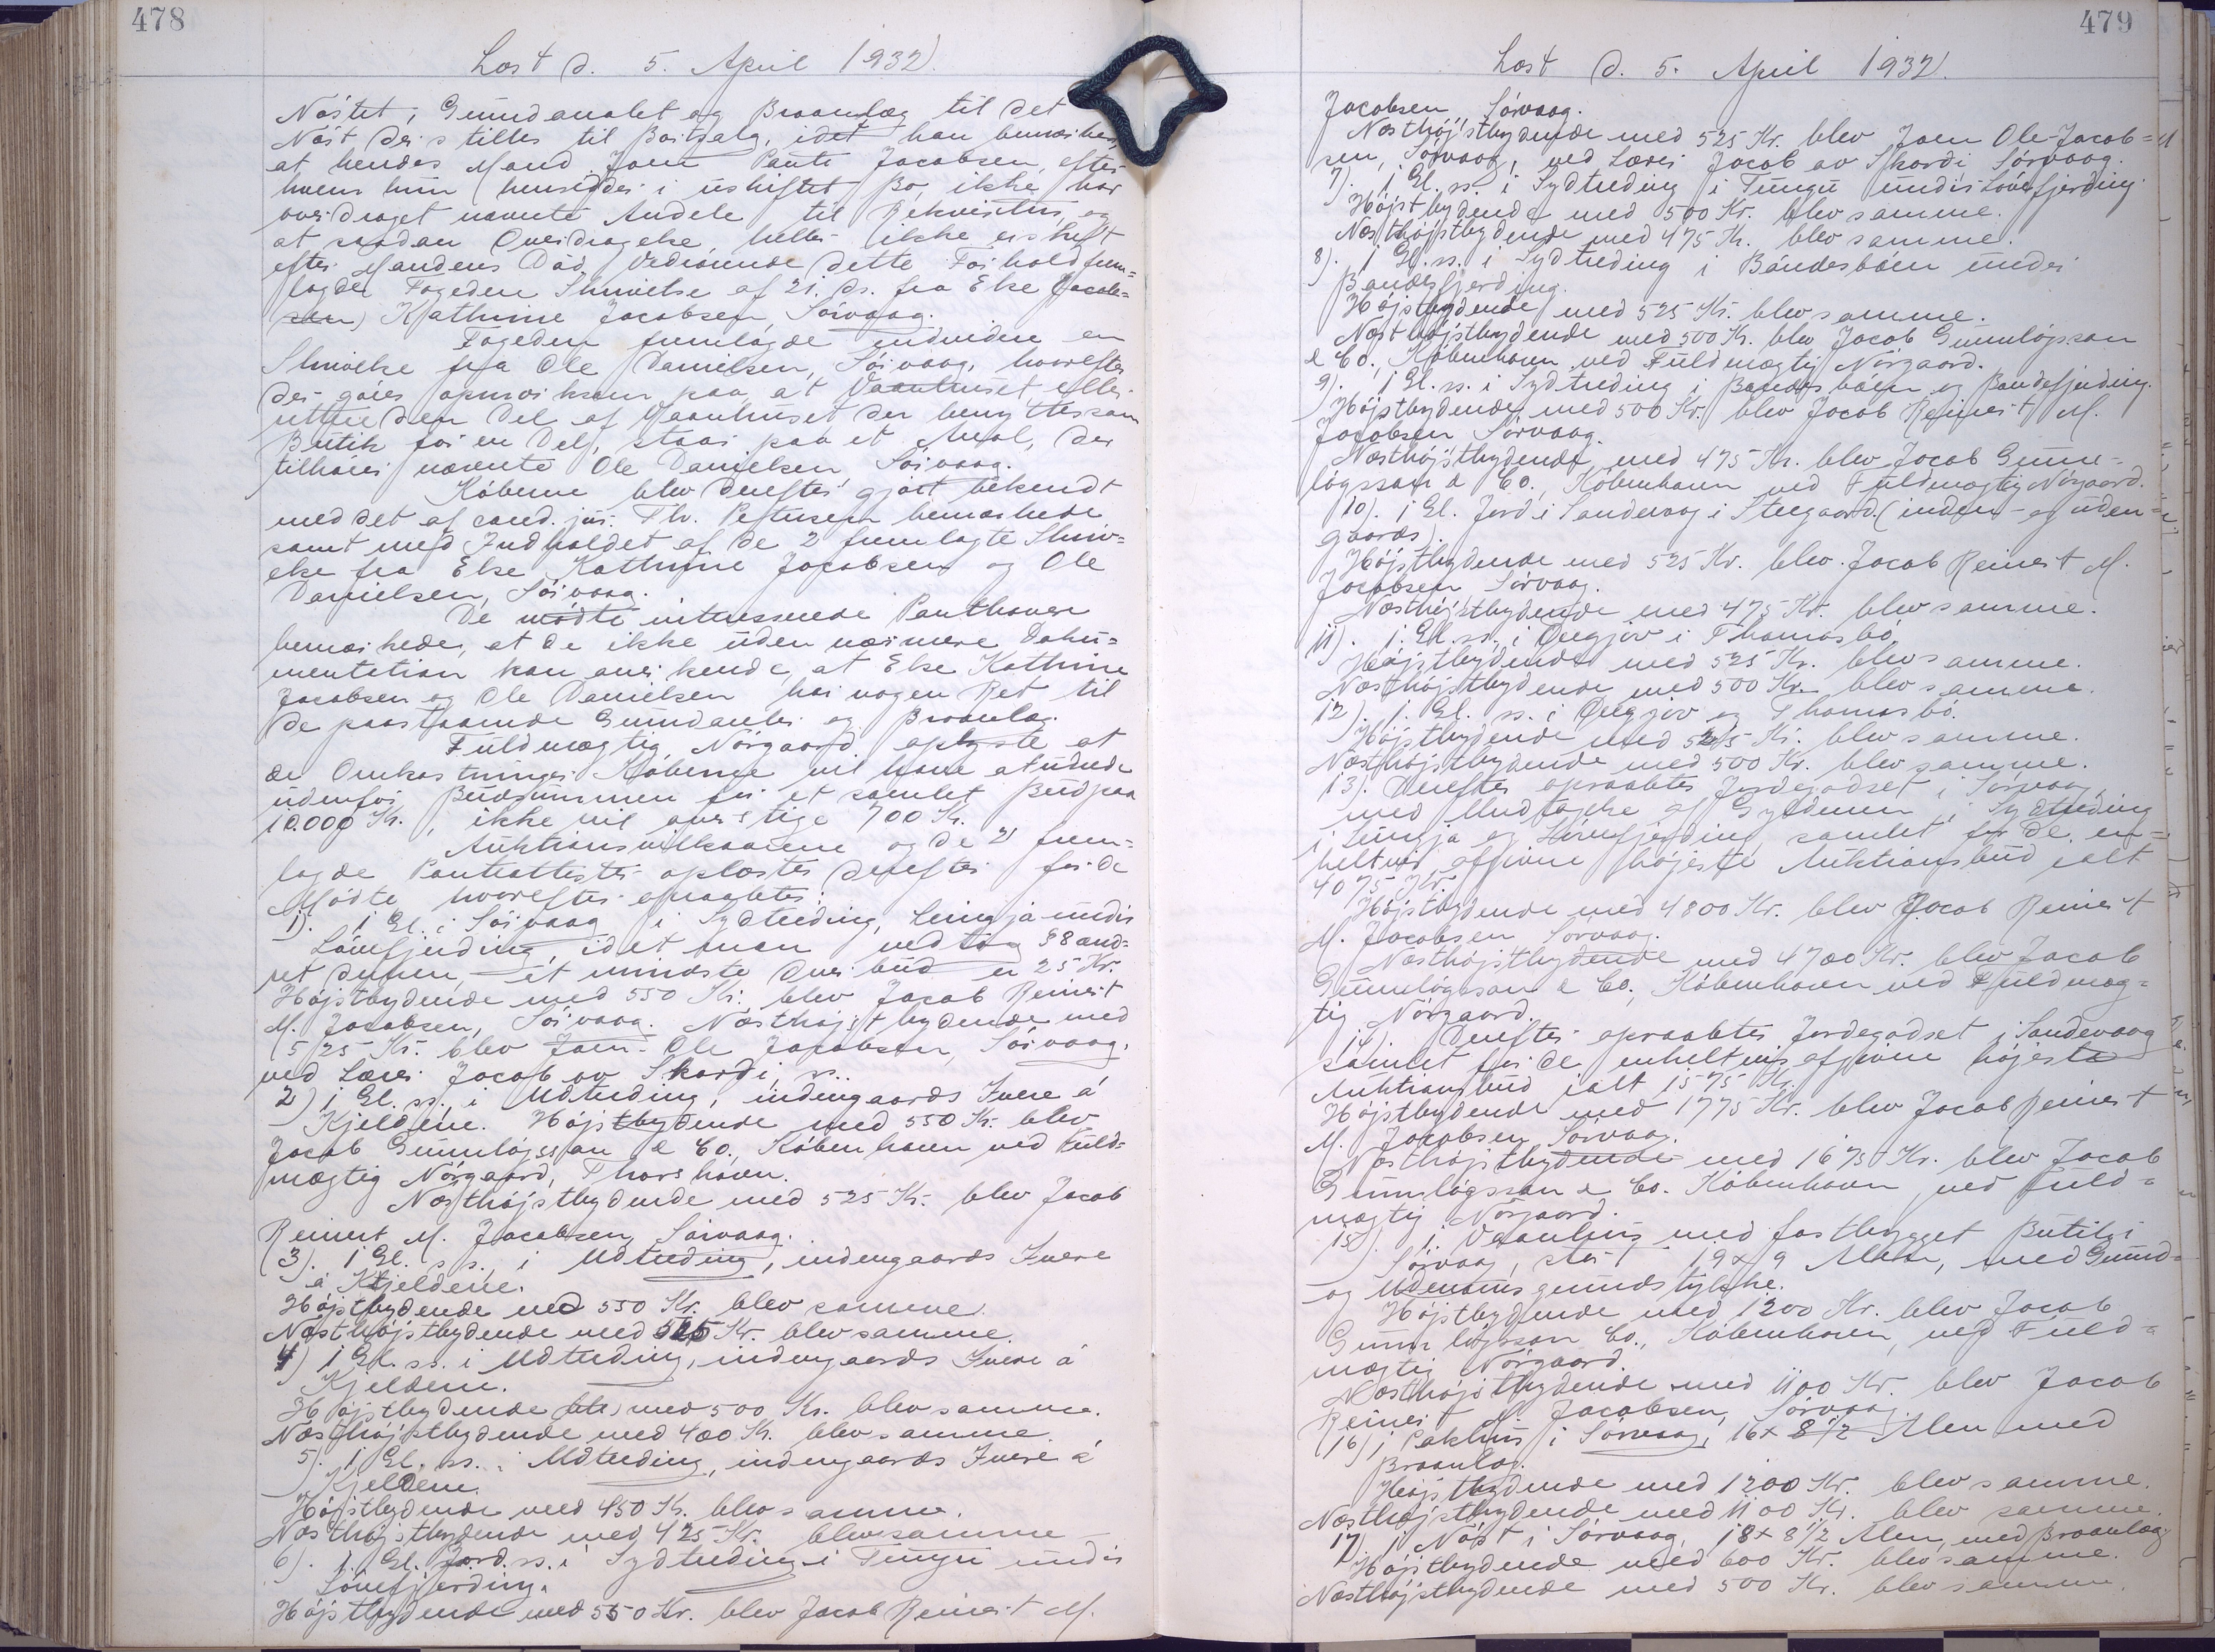 478
Læst d. 5. April 1932.
Nöstet, Grundarealet og Braanlæg til det
Nöst der stilles til Bortsalg, idet han bemærkede,
at hendes Mand Joen Pauli Jacobsen, efter
hvem hun hensidder i uskiftet Bo, ikke har
overdraget nævnte Andele til Rekvisitus og
at saadan Overdragelse heller ikke er sket
efter Mandens Död. Vedrörende dette Forhold frem-
lagde Fogeden Skrivelse af 21. ds. fra Else (Jacob-
sen) Kathrine Jacobsen, Sörvaag.
Fogeden fremlagde endvidere en
Skrivelse fra Ole Danielsen, Sörvaag, hvorefter
der göres opmærksom paa, at Vaanhuset eller
den Del af Vaanhuset der benyttes som
Butik for en Del, staar paa et Areal, der
tilhörer nævnte Ole Danielsen Sörvaag.
Köberne blev derefter gjort bekendt
med det af cand. jur. Th. Petersen bemærkede
samt med Indholdet af de 2 fremlagte Skriv-
else fra Else Kathrine Jacobsen og Ole
Danielsen, Sörvaag.
De mödte interesserede Panthaver
bemærkede, at de ikke uden nærmere Doku-
mentation kan anerkende, at Else Kathrine
Jacobsen og Ole Danielsen har nogen Ret til
de paastaaede Grundarealer og Braanlæg.
Fuldmægtig Nörgaard oplyste at
de Omkostninger Köberne vil have at udrede
udenfor Budsummen for et samlet Bud paa
10.000 Kr., ikke vil overstige 700 Kr.
Auktionsvilkaarene og de 2 frem-
lagde Pantattester oplæstes derefter for de
Mödte, hvorefter opraabtes:
1). 1 Gl. i Sörvaag i Sydtreding, Leingja under
Lönefjerding, idet man vedtog § 8 ænd-
ret derhen, at mindste Overbud er 25 Kr.
Højstbydende med 550 Kr. blev Jacob Reinert
M. Jacobsen, Sörvaag. Næsthøjstbydende med
525 Kr. blev Joen-Ole Jacobsen, Sörvaag,
ved Lærer Jacob av Skardi, ss.
2) 1 Gl. ss. i Udtreding, indengaards Inere á
Kjeldene. Højstbydende med 550 Kr. blev
Jacob Gunnløgsson & Co., København ved Fuld-
mægtig Nörgaard, Thorshavn.
Næsthøjstbydende med 525 Kr. blev Jacob
Reinert M. Jacobsen, Sörvaag.
3). 1 Gl. ss. i Udtreding, indengaards Inere
á Kjeldene.
Højstbydende med 550 Kr. blev samme.
Næsthøjstbydende med 525 Kr. blev samme.
4) 1 Gl. ss. i Udtreding, indengaards Inere á
Kjeldene.
Højstbydende (ble) med 500 Kr. blev samme.
Næsthøjstbydende med 400 Kr. blev samme.
5). 1 Gl. ss. i Udtreding, indengaards Inere á
Kjeldene.
Højstbydende med 450 Kr. blev samme.
Næsthøjstbydende med 425 Kr. blev samme
6). 1 Gl. Jord. ss. i Sydtreding i Tungu under
Lönefjerding.
Højstbydende med 550 Kr. blev Jacob Reinert M.
479
Læst d. 5. April 1932.
Jacobsen, Sörvaag.
Næsthøjstbydende med 525 Kr. blev Joen Ole Jacob-
sen, Sörvaag, ved Lærer Jacob av Skardi Sörvaag.
7). 1 Gl. ss. i Sydtreding i Tungu under Lönefjerding.
Højstbydende med 500 Kr. blev samme.
Næsthøjstbydende med 475 Kr. blev samme.
8). 1 Gl. ss. i Sydtreding i Böndesböen under
Bandesfjerding.
Højstbydende med 525 Kr. blev samme.
Næsthøjstbydende med 500 Kr. blev Jacob Gunnløgsson
& Co., København ved Fuldmægtig Nörgaard.
9). 1 Gl. ss. i Sydtreding i Böndesböen og Bandefjerding.
Højstbydende med 500 Kr. blev Jacob Reinert M.
Jacobsen Sörvaag.
Næsthøjstbydende med 475 Kr. blev Jacob Gunn-
løgsson & Co., København ved Fuldmægtig Nörgaard.
10). 1 Gl. Jord i Sandevaag i Steegaard (inden- og uden-
gaards).
Højstbydende med 525 Kr. blev Jacob Reinert M.
Jacobsen Sörvaag.
Næsthøjstbydende med 475 Kr. blev samme.
11). 1. Gl. ss. i Öregjov i Thomasbö.
Højstbydende med 525 Kr. blev samme.
Næsthøjstbydende med 500 Kr. blev samme.
12). 1. Gl. ss. i Öregjov og Thomasbö.
Højstbydende med 525 Kr. blev samme.
Næsthøjstbydende med 500 Kr. blev samme.
13). Derefter opraabtes Jordegodset i Sörvaag,
med Undtagelse af Gyldenen i Sydtreding
i Leingja og Lönefjerding samlet for de en-
keltvis afgivne højeste Auktionsbud ialt
4075 Kr.
Højstbydende med 4800 Kr. blev Jacob Reinert
M. Jacobsen Sörvaag.
Næsthøjstbydende med 4700 Kr. blev Jacob
Gunnløgsson & Co., København ved Fuldmæg-
tig Nörgaard.
14). Derefter opraabtes Jordegodset i Sandevaag
samlet for de enkeltvis afgivne højeste
Auktionsbud ialt 1575 Kr.
Højstbydende med 1775 Kr. blev Jacob Reinert
M. Jacobsen Sörvaag.
Næsthøjstbydende med 1675 Kr. blev Jacob
Gunnløgsson & Co. København, ved Fuld-
mægtig Nörgaard.
15). 1 Vaanhus med fastbygget Butik i
Sörvaag, stör. 19 x 9 Alen, med Grund-
og Udenomsgrundstykke.
Højstbydende med 1200 Kr. blev Jacob
Gunnløgsson Co., København, ved Fuld-
mægtig Nörgaard.
Næsthøjstbydende med 1100 Kr. blev Jacob
Reinert M. Jacobsen, Sörvaag.
16) 1 Pakhus i Sörvaag, 16 x 8 1/2 Alen med
Braanlæg.
Højstbydende med 1200 Kr. blev samme.
Næsthøjstbydende med 1100 Kr. blev samme.
17) 1 Nöst i Sörvaag, 18 x 8 1/2 Alen, med Braanlæg.
Højstbydende med 600 Kr. blev samme.
Næsthøjstbydende med 500 Kr. blev samme.